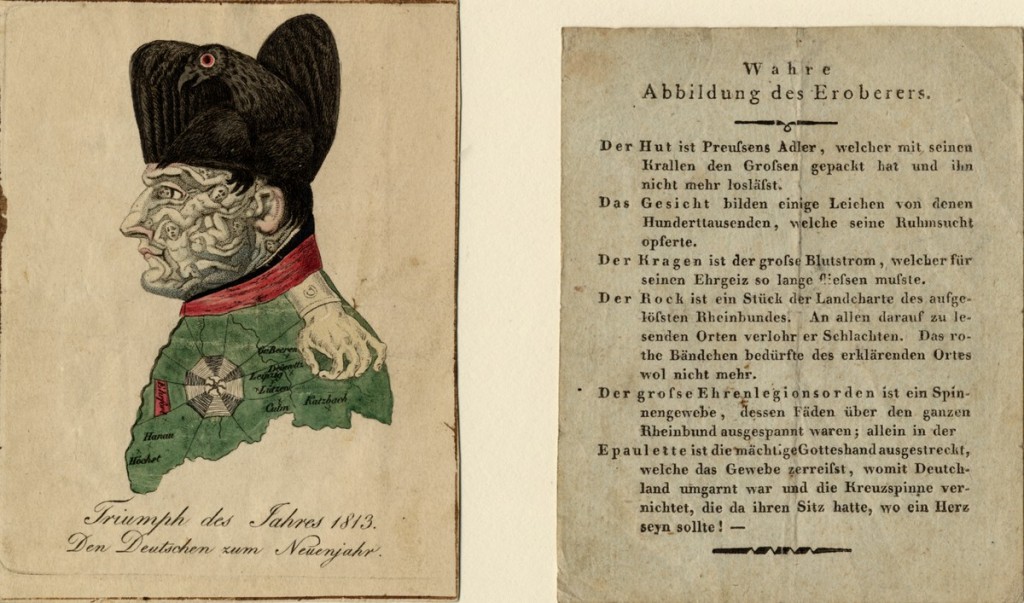 Leipzig
Lützen
Culm
Katzbach
Hanau
Höchst
Triumph des Jahres 1813.
Den Deutschen zum Neuenjahr.
Wahre
Abbildung des Eroberers.
Der Hut ist Preuſsens Adler, welcher mit seinen
Krallen den Groſsen gepackt hat und ihn
nicht mehr losläſst.
Das Gesicht bilden einige Leichen von denen
Hunderttausenden, welche seine Ruhmsucht
opferte.
Der Kragen ist der groſse Blutstrom, welcher für
seinen Ehrgeiz so lange flieſsen muſste.
Der Rock ist ein Stück der Landcharte des aufge-
löſsten Rheinbundes. An allen darauf zu le-
senden Orten verlohr er Schlachten. Das ro-
the Bändchen bedürfte des erklärenden Ortes
wol nicht mehr.
Der groſse Ehrenlegionsorden ist ein Spin-
nengewebe, dessen Fäden über den ganzen
Rheinbund ausgespannt waren; allein in der
Epaulette ist die mächtige Gotteshand ausgestreckt,
welche das Gewebe zerreiſst, womit Deutch-
land umgarnt war und die Kreuzspinne ver-
nichtet, die da ihren Sitz hatte, wo ein Herz
seyn sollte! —